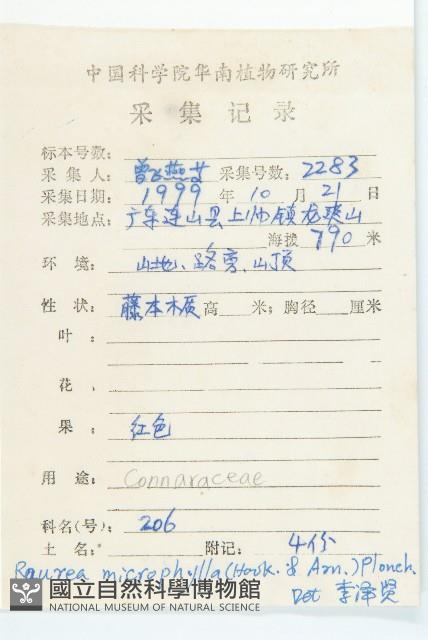 中国科学院华南植物研究所
采集记录
标本号数:
采集人: 曾飞燕 采集号数: 2283
采集日期: 1999 年 10 月 21 日
采集地点: 广东连山县上帅镇
海拨 790 米
环境: 山地、路旁、山顶
性状: 藤本木质 高 米; 胸径 厘米
叶:
花:
果: 红色
用途: Connaraceae
科名(号): 206
土名: 附记: 4份
Rourea microphylla (Hook. & Arn.) Planch.
Det 李泽贤
國立自然科學博物館
NATIONAL MUSEUM OF NATURAL SCIENCE